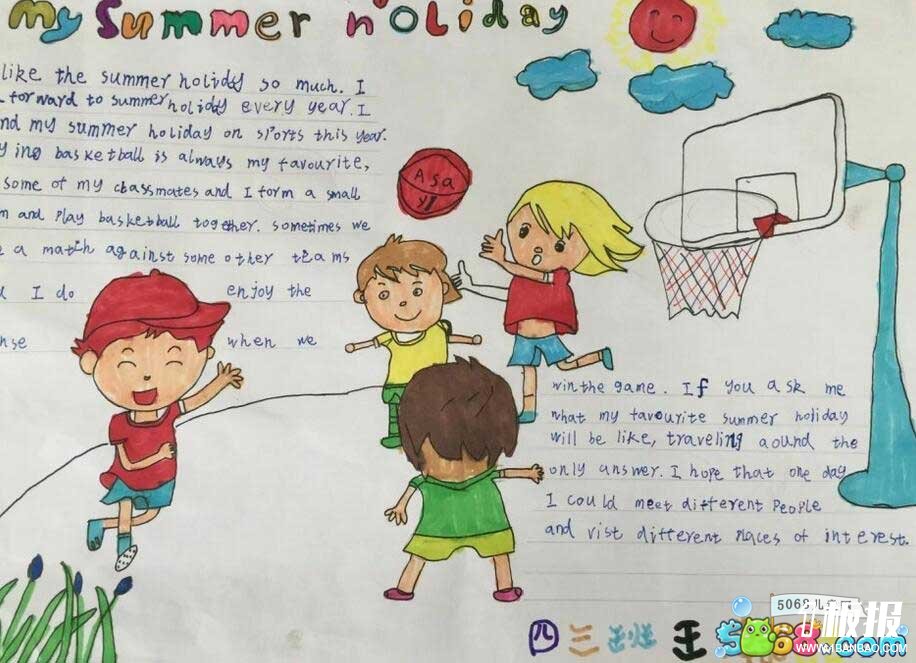 my Summer holiday
like the summer holidy so much. I
forward to summer holiday every year. I
nd my summer holiday on sports this year.
ying basketball is always my favourite,
some of my cbassmates and I form a small
m and play basketball together. sometimes we
e a match against some other teams
I do enjoy the
nse when we
Asa
yi
win the game. If you ask me
what my favourite summer holiday
will be like, traveling aound the
only answer. I hope that one day
I could meet different people
and vist different places of interest.
四 三 班 王
5068儿童网
板报
5068.com
WWW.BANBAO.COM